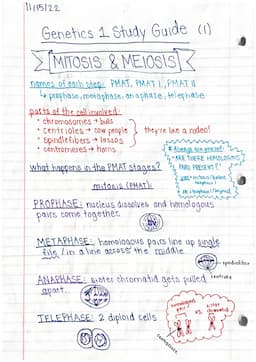 11/15/22
Genetics 1 Study Guide (1)
MITOSIS & MEIOSIS
names of each step: PMAT, PMAT I, PMAT II
↳ prophase, metaphase, anaphase, telephase
parts of the cell involved:
• chromosomes → bulls
• centrioles → cow people
• spindle fibers → lassos
• centromeres → horns
they're like a rodeo!
what happens in the PMAT stages?
* Always ask yourself:
"ARE THERE HOMOLOGOUS
PAIRS PRESENT?"
mitosis (PMAT):
PROPHASE: nucleus dissolves and homologous
pairs come together.
METAPHASE: homologous pairs line up single
file / in a line across the middle.
spindle fiber
centriole
ANAPHASE: sister chromatid gets pulled
apart.
homologous
pair
vs.
sister
chromatid
TELEPHASE: 2 diploid cells
centromere